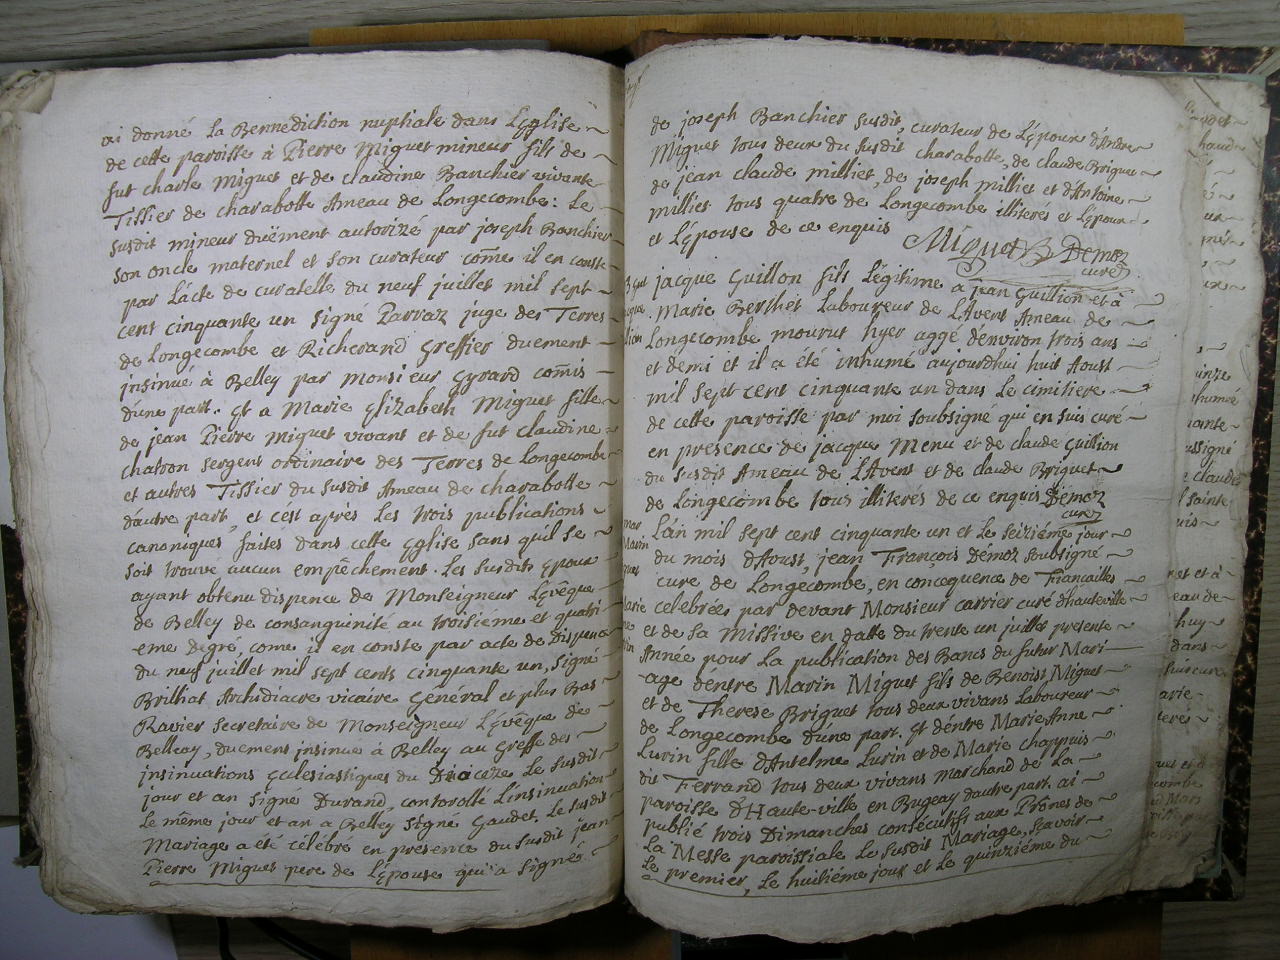 ai donné la Bennediction nuptiale dans Lęglise
de cette paroisse à Pierre Miguet mineur fils de
fut charle Miguet et de claudine Banchier vivante
Tissier de charabotte Ameau de Longecombe: Le
susdit mineur duëment autorizé par joseph Banchier
son oncle maternel et son curateur come il en conste
par Lacte de curatelle du neuf juillet mil sept
cent cinquante un signé Parraz juge des Terres
de Longecombe et Richerand Greffier duement
insinué à Belley par Monsieur Gyrard comis
dune part. Et a Marie Elizabeth Miguet fille
de jean Pierre Miguet vivant et de fut claudine
chatron sergent ordinaire des Terres de Longecombe
et autres Tissier du susdit Ameau de charabotte
dautre part, et cest après Les trois publications
canoniques faites dans cette Eglise sans quil se
soit trouvé aucun empêchement. Les susdits Epoux
ayant obtenu dispence de Monseigneur Levêque
de Belley de consanguinité au troisiéme et quatri
eme degré, come il en conste par acte de dispence
du neuf juillet mil sept cents cinquante un, signé
Brilhat Archidiacre vicaire Général et plus Bas
Ravier secretaire de Monseigneur Levêque de
Belleay, duement insinué à Belley au Greffe des
insinuations Eclesiastiques du Diocèze Le susdit
jour et an signé Durand, controllé Linsinuation
Le même jour et an a Belley signé Gaudet. Le susdit
Mariage a été célébré en présence du susdit jean
Pierre Miguet pere de Lépouse qui a signé
de joseph Banchier susdit, curateur de Lépoux dAndre
Miguet tous deux du susdit charabotte, de claude Briguet
de jean claude milliet, de joseph milliet et dAntoine
milliet tous quatre de Longecombe illiterés et Lépoux
et Lépouse de ce enquis Miguet Demoz
curé
jacque Guillon fils Légitime a jean Guillion et à
Marie Berthet Laboureur de LAvent Ameau de
Longecombe mourut hyer aggé denviron trois ans
et demi et il a été inhumé aujourdhui huit Aoust
mil sept cent cinquante un dans Le cimitiere
de cette paroisse par moi soubsigné qui en suis curé
en presence de jacque Menu et de claude Guillion
du susdit Ameau de LAvent et de claude Briguet
de Longecombe tous illiterés de ce enquis Demoz
curé
mar
Lan mil sept cent cinquante un et Le seiziéme jour
Marin
du mois dAoust, jean François Démoz soubsigné
curé de Longecombe, en consequence de Fiançailles
celebrées par devant Monsieur carrier curé dhauteville
et de sa Missive en datte du trente un juillet presente
Année pour La publication des Bancs du futur Mari
-age dentre Marin Miguet fils de Benoist Miguet
et de Therese Briguet tous deux vivans Laboureur
de Longecombe dune part. Et déntre Marie Anne
Lurin fille dAntelme Lurin et de Marie chappuis
dit Ferrand tous deux vivans marchand de La
paroisse dHaute-ville en Bugeay dautre part. ai
publié trois Dimanches consécutifs aux Prônes de
La Messe paroissiale Le susdit Mariage, sçavoir
Le premier, Le huitiéme jour et Le quinziéme du